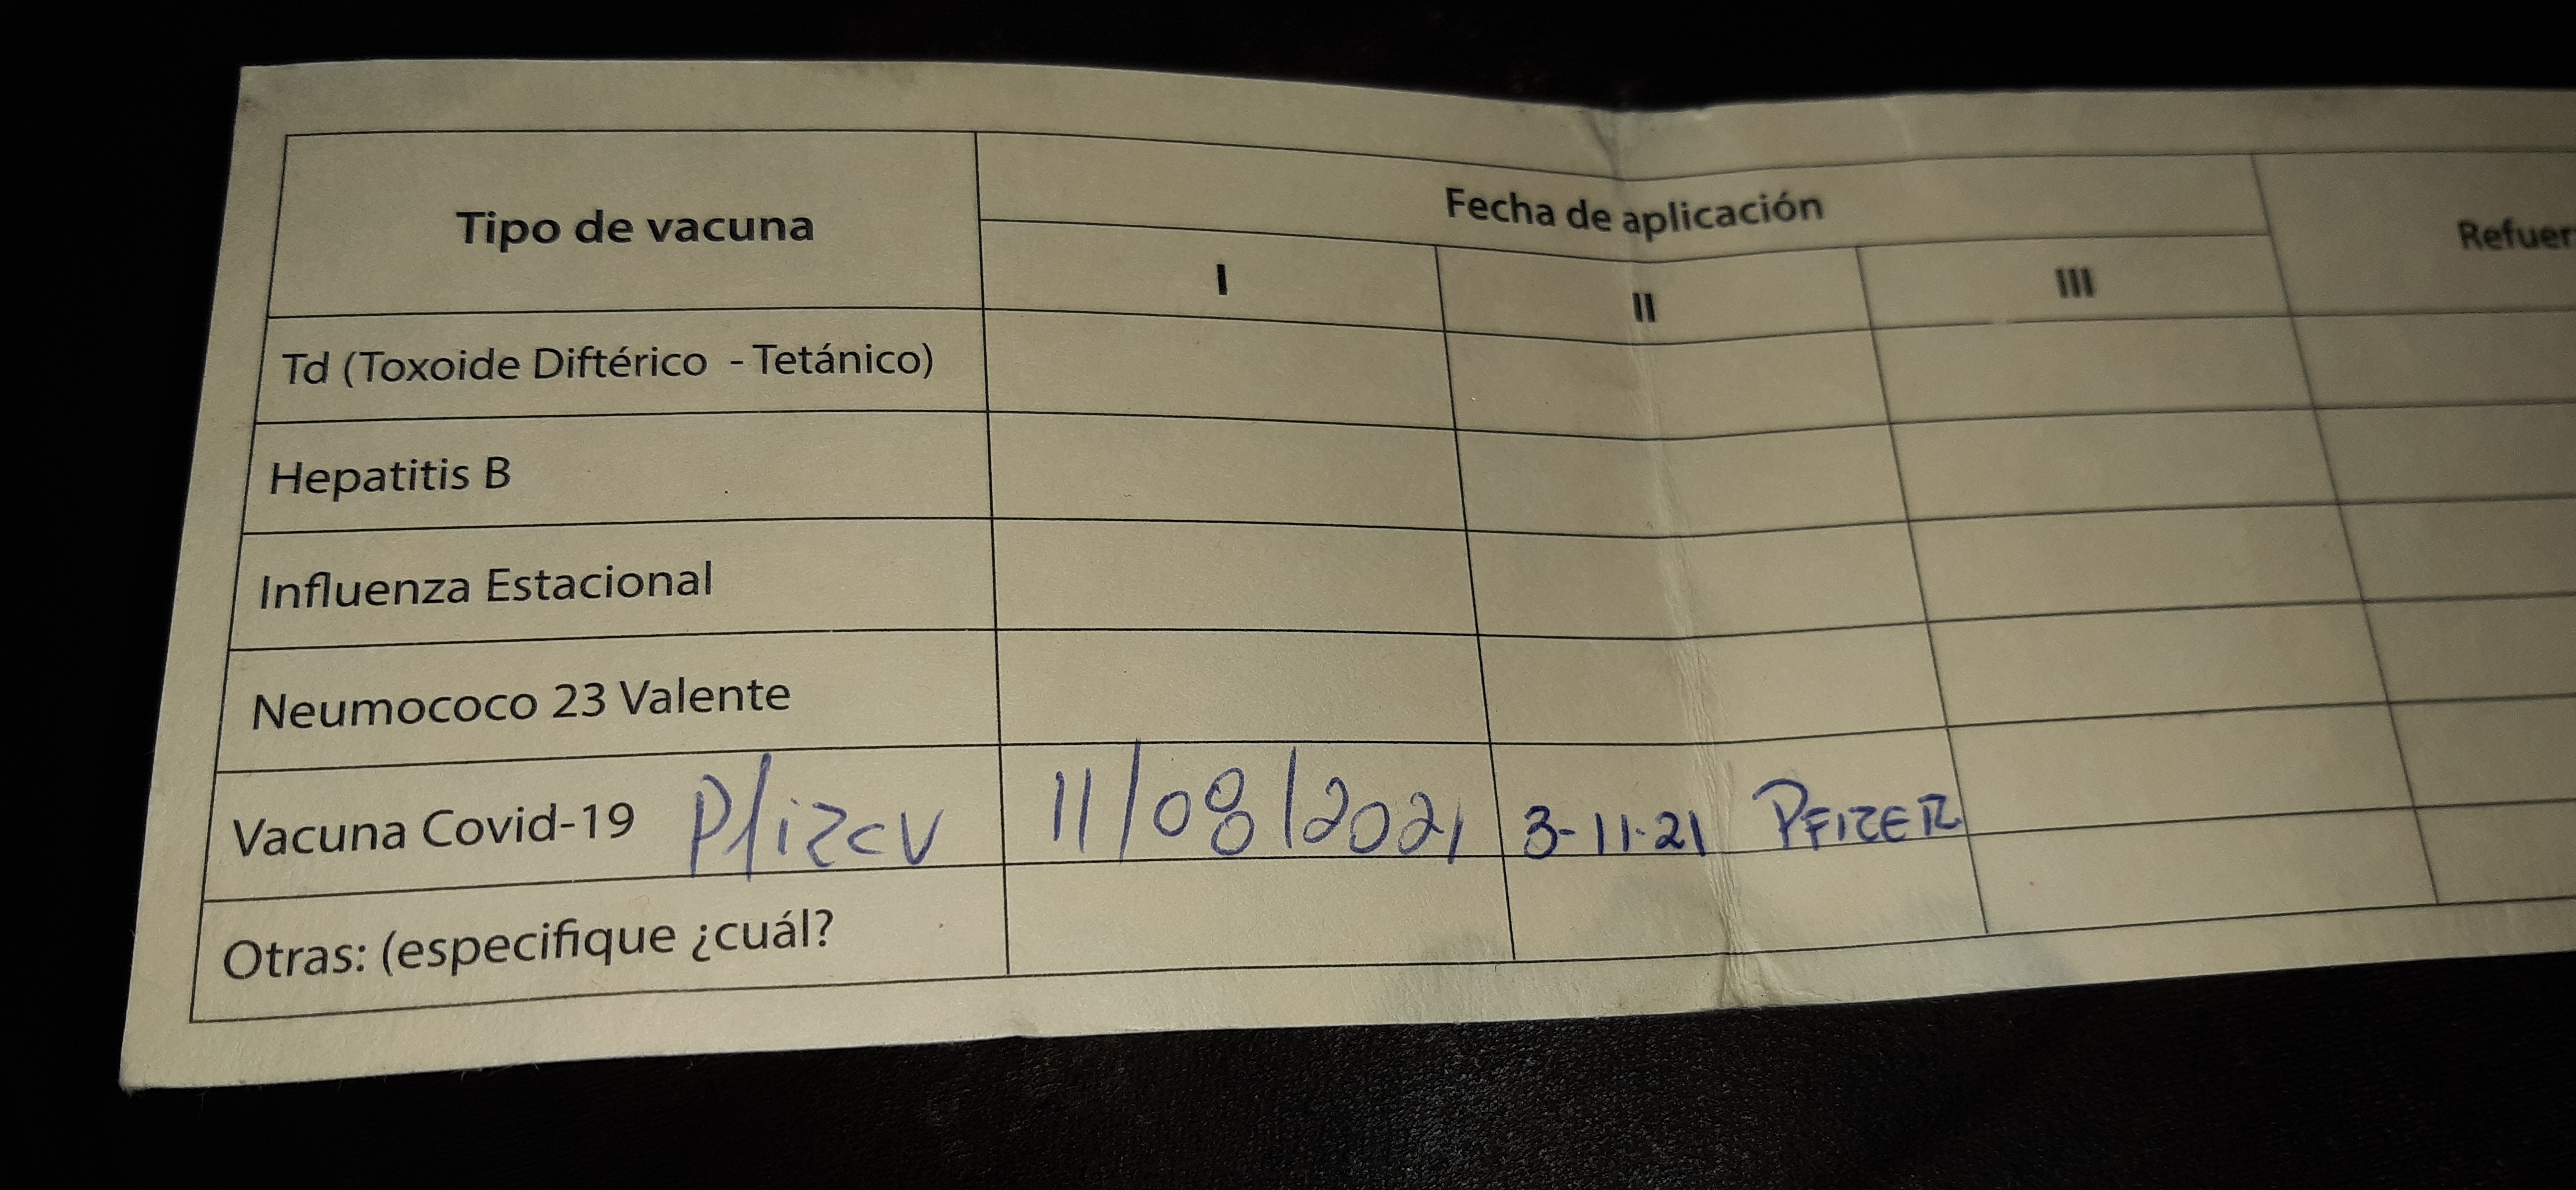 Tipo de vacuna
Fecha de aplicación
Refuer
I II III
Td (Toxoide Diftérico - Tetánico)
Hepatitis B
Influenza Estacional
Neumococo 23 Valente
Vacuna Covid-19 Pfizer 11/08/2021 3-11-21 PFIZER
Otras: (especifique ¿cuál?